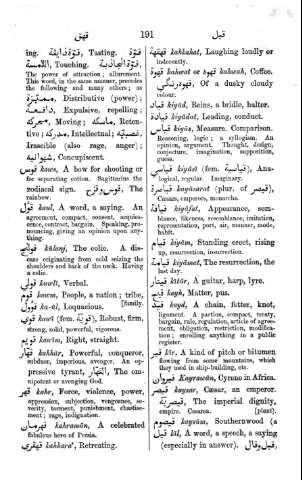 قهق 191 قيل
ing. قوة ذايقه, Tasting. قوة
الجاذبه, Touching. اللامسه
The power of attraction; allurement.
This word, in the same manner, precedes
the following and many others; as
مميزه, Distributive (power);
دافعه, Expulsive, repelling;
محركه, Moving; ماسكه, Reten-
tive; مدركه, Intellectual; غضبيه,
Irascible (also rage, anger);
شهوانيه, Concupiscent.
قوس kaws, A bow for shooting or
for separating cotton. Sagittarius the
zodiacal sign. قوس وقزح, The
rainbow.
قول kaul, A word, a saying. An
agreement, compact, consent, acquies-
cence, contract, bargain. Speaking, pro-
nouncing, giving an opinion upon any-
thing.
قولنج kūlenj, The colic. A dis-
ease originating from cold seizing the
shoulders and back of the neck. Having
a colic.
قولي kawlī, Verbal.
قوم kawm, People, a nation; tribe,
[family.
Loquacious.
قوي kawī (fem. قويه), Robust, firm,
strong, solid, powerful, vigorous.
قويم kawīm, Right, straight.
قهار kahhār, Powerful, conqueror,
subduer, imperious, avenger. An op-
pressive tyrant, القهار, The om-
nipotent or avenging God.
قهر kahr, Force, violence, power,
oppression, subjection, vengeance, se-
verity, torment, punishment, chastise-
ment; rage, indignation.
قهرمان kahramān, A celebrated
fabulous hero of Persia.
Retreating.
قهقهه kahkahat, Laughing loudly or
indecently.
قهوه kahwat or kahwah, Coffee.
قهوه رنگي, Of a dusky cloudy
colour.
قياد kiyād, Reins, a bridle, halter.
قيادة kiyādat, Leading, conduct.
قياس kiyās, Measure. Comparison.
Reasoning, logic; a syllogism. An
opinion, argument. Thought, design,
conjecture, imagination, supposition,
guess.
قياسي kiyāsī (fem. قياسيه), Ana-
logical, regular. Imaginary.
قياصره kayāsarat (plur. of قيصر),
Cæsars, emperors, monarchs.
قيافة kiyāfat, Appearance, sem-
blance, likeness, resemblance, imitation,
representation, port, air, manner, mode,
habit.
قيام kiyām, Standing erect, rising
up, resurrection, insurrection.
قيامة kiyāmat, The resurrection, the
last day.
قيتار kītār, A guitar, harp, lyre.
قيح kayh, Matter, pus.
قيد kayd, A chain, fetter, knot,
ligament. A partion, compact, treaty,
bargain, rule, regulation, article of agree-
ment, obligation, restriction, modifica-
tion; enrolling anything in a public
register.
قير kīr, A kind of pitch or bitumen
flowing from some mountains, which
they used in ship-building, etc.
قيروان Kayrawān, Cyrene in Africa.
قيصر kaysar, Cæsar, an emperor.
قيصريه, The imperial dignity,
empire. Cesarea. [plant).
قيصوم kaysūm, Southernwood (a
قيل kīl, A word, a speech, a saying
(especially in answer). قيل وقال,